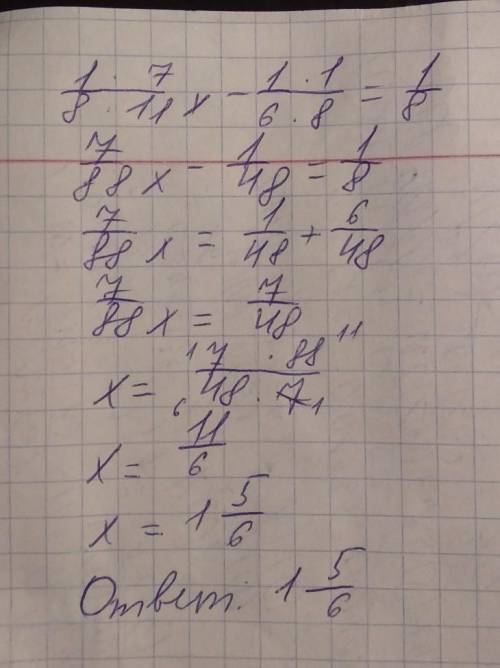 1 · 7 / 8 · 11 x − 1 · 1 / 6 · 8 = 1/8
7/88 x − 1/48 = 1/8
7/88 x = 1/48 + 6/48
7/88 x = 7/48
x = 1 7 · 88 11 / 6 48 · 7 1
x = 11/6
x = 1 5/6
Ответ: 1 5/6